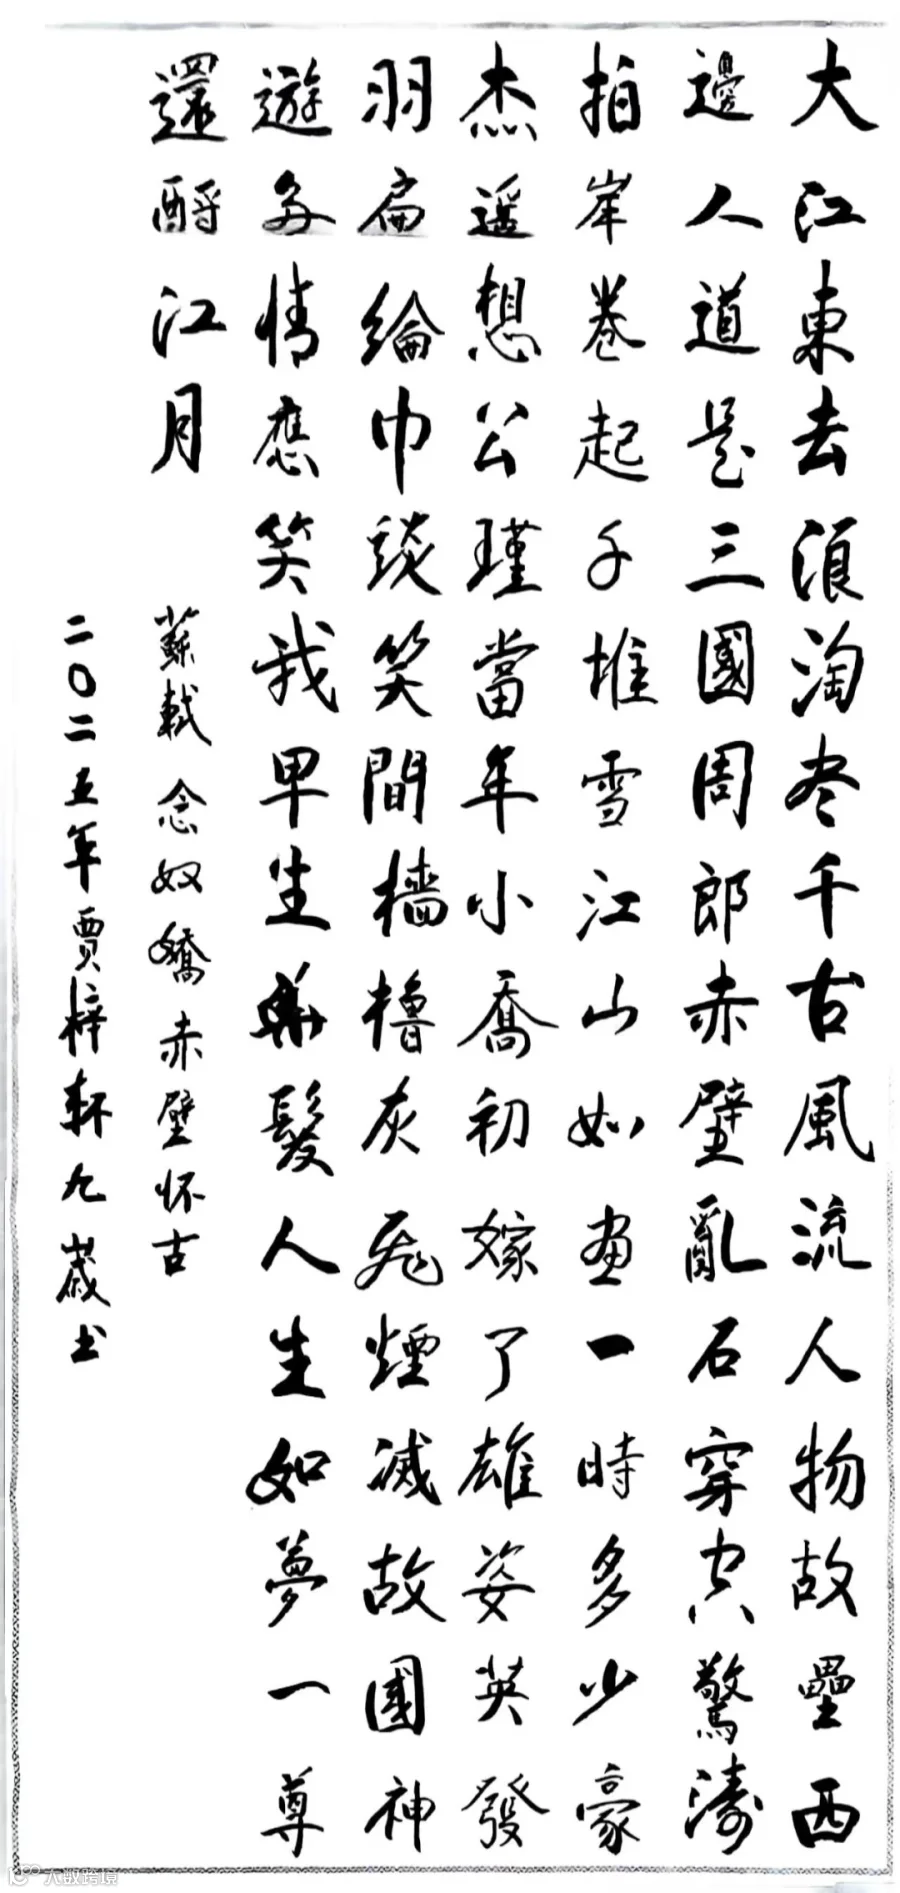 大江東去浪淘尽千古風流人物故壘西
邊人道是三國周郎赤壁亂石穿空驚濤
拍岸卷起千堆雪江山如畫一時多少豪
杰遥想公瑾當年小喬初嫁了雄姿英發
羽扇綸巾談笑間檣櫓灰飛煙滅故國神
遊多情應笑我早生華髮人生如夢一尊
還酹江月
蘇軾念奴嬌赤壁怀古
二〇二五年賈梓軒九歲书
大数跨境